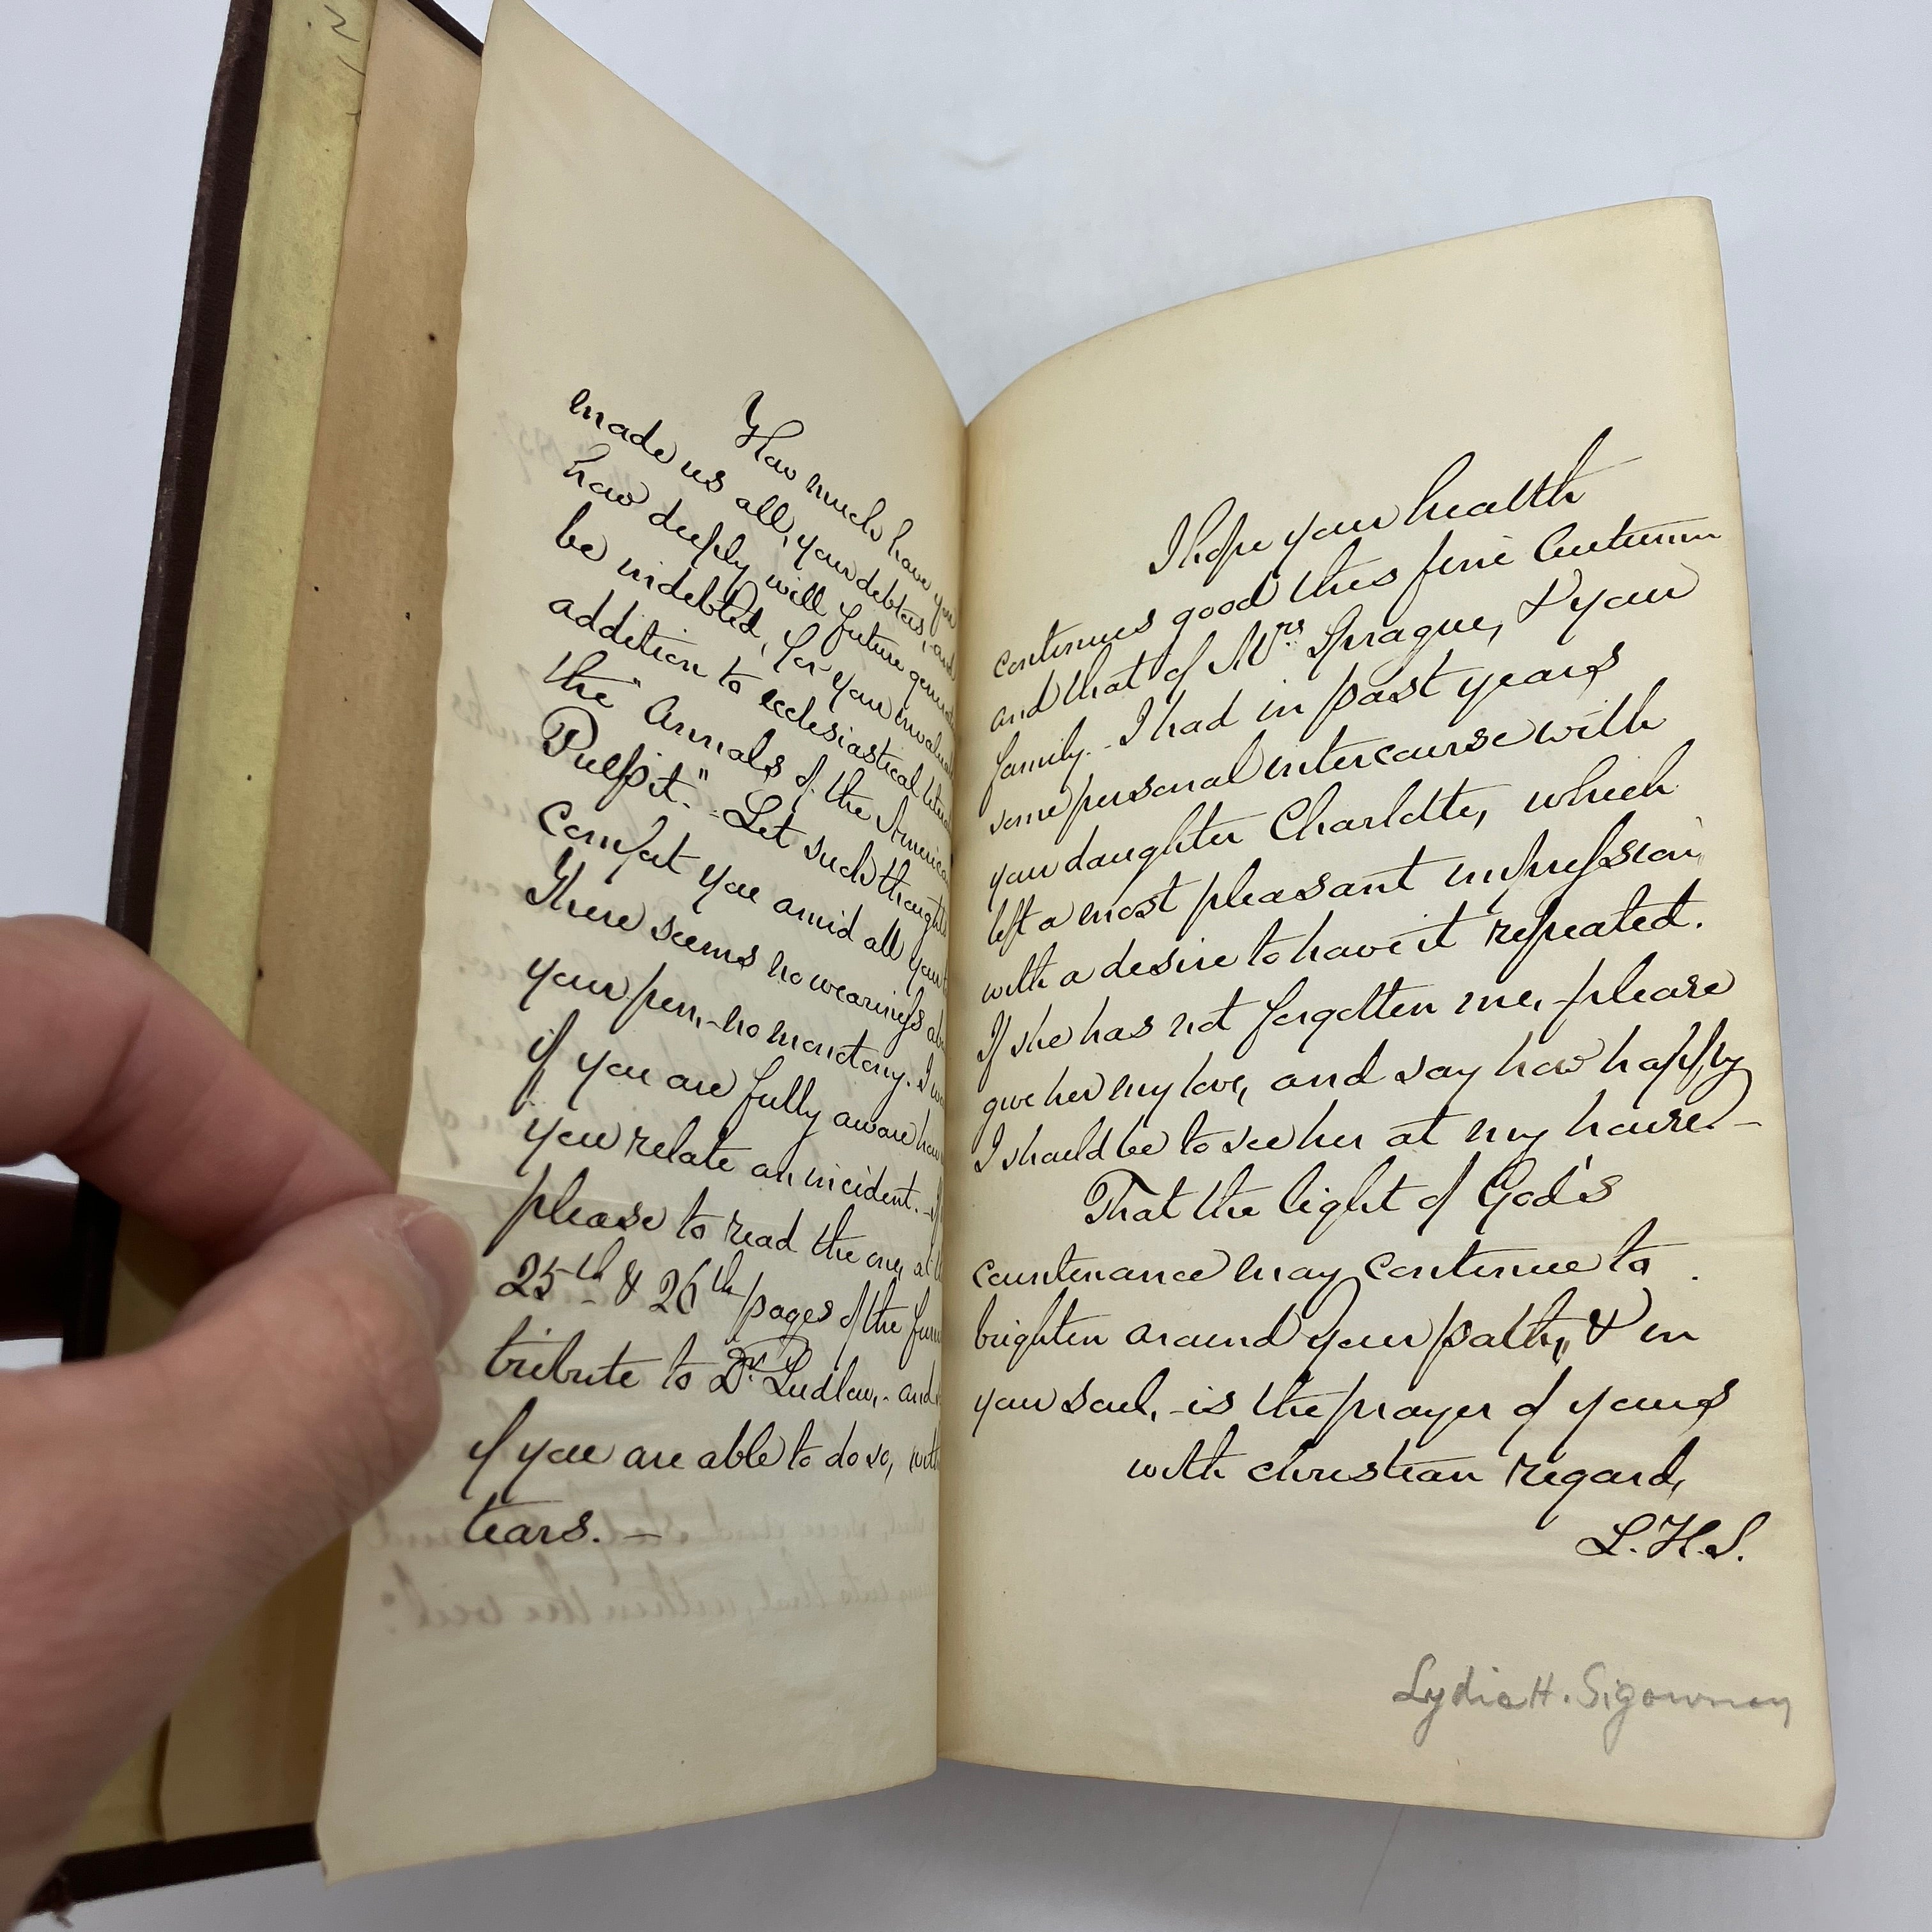 How much have you
made us all, your debtors, and
how deeply will future
be indebted, for your
addition to ecclesiastical
the "Annals of the American
Pulpit." - Let such thoughts
comfort you amid all your
There seems no weariness
your pen, - no monotony. I
if you are fully aware how
you relate an incident. -
please to read the one, at
25th & 26th pages of the
tribute to Dr. Ludlow, - and
if you are able to do so,
tears. -
I hope your health
continues good this fine Autumn
and that of Mrs. Sprague, & your
family. - I had in past years
some personal intercourse with
your daughter Charlotte, which
left a most pleasant impression,
with a desire to have it repeated.
If she has not forgotten me, - please
give her my love, and say how happy
I should be to see her at my house. -
That the light of God's
countenance may continue to
brighten around your path, & in
your soul, - is the prayer of yours
with christian regard,
L.H.S.
Lydia H. Sigourney